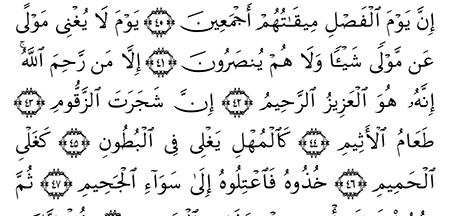 إِنَّ يَوْمَ الْفَصْلِ مِيقَاتُهُمْ أَجْمَعِينَ ﴿٤٠﴾ يَوْمَ لَا يُغْنِي مَوْلًى
عَن مَّوْلًى شَيْئًا وَلَا هُمْ يُنصَرُونَ ﴿٤١﴾ إِلَّا مَن رَّحِمَ اللَّهُ ۚ
إِنَّهُ هُوَ الْعَزِيزُ الرَّحِيمُ ﴿٤٢﴾ إِنَّ شَجَرَتَ الزَّقُّومِ ﴿٤٣﴾
طَعَامُ الْأَثِيمِ ﴿٤٤﴾ كَالْمُهْلِ يَغْلِي فِي الْبُطُونِ ﴿٤٥﴾ كَغَلْيِ
الْحَمِيمِ ﴿٤٦﴾ خُذُوهُ فَاعْتِلُوهُ إِلَىٰ سَوَاءِ الْجَحِيمِ ﴿٤٧﴾ ثُمَّ